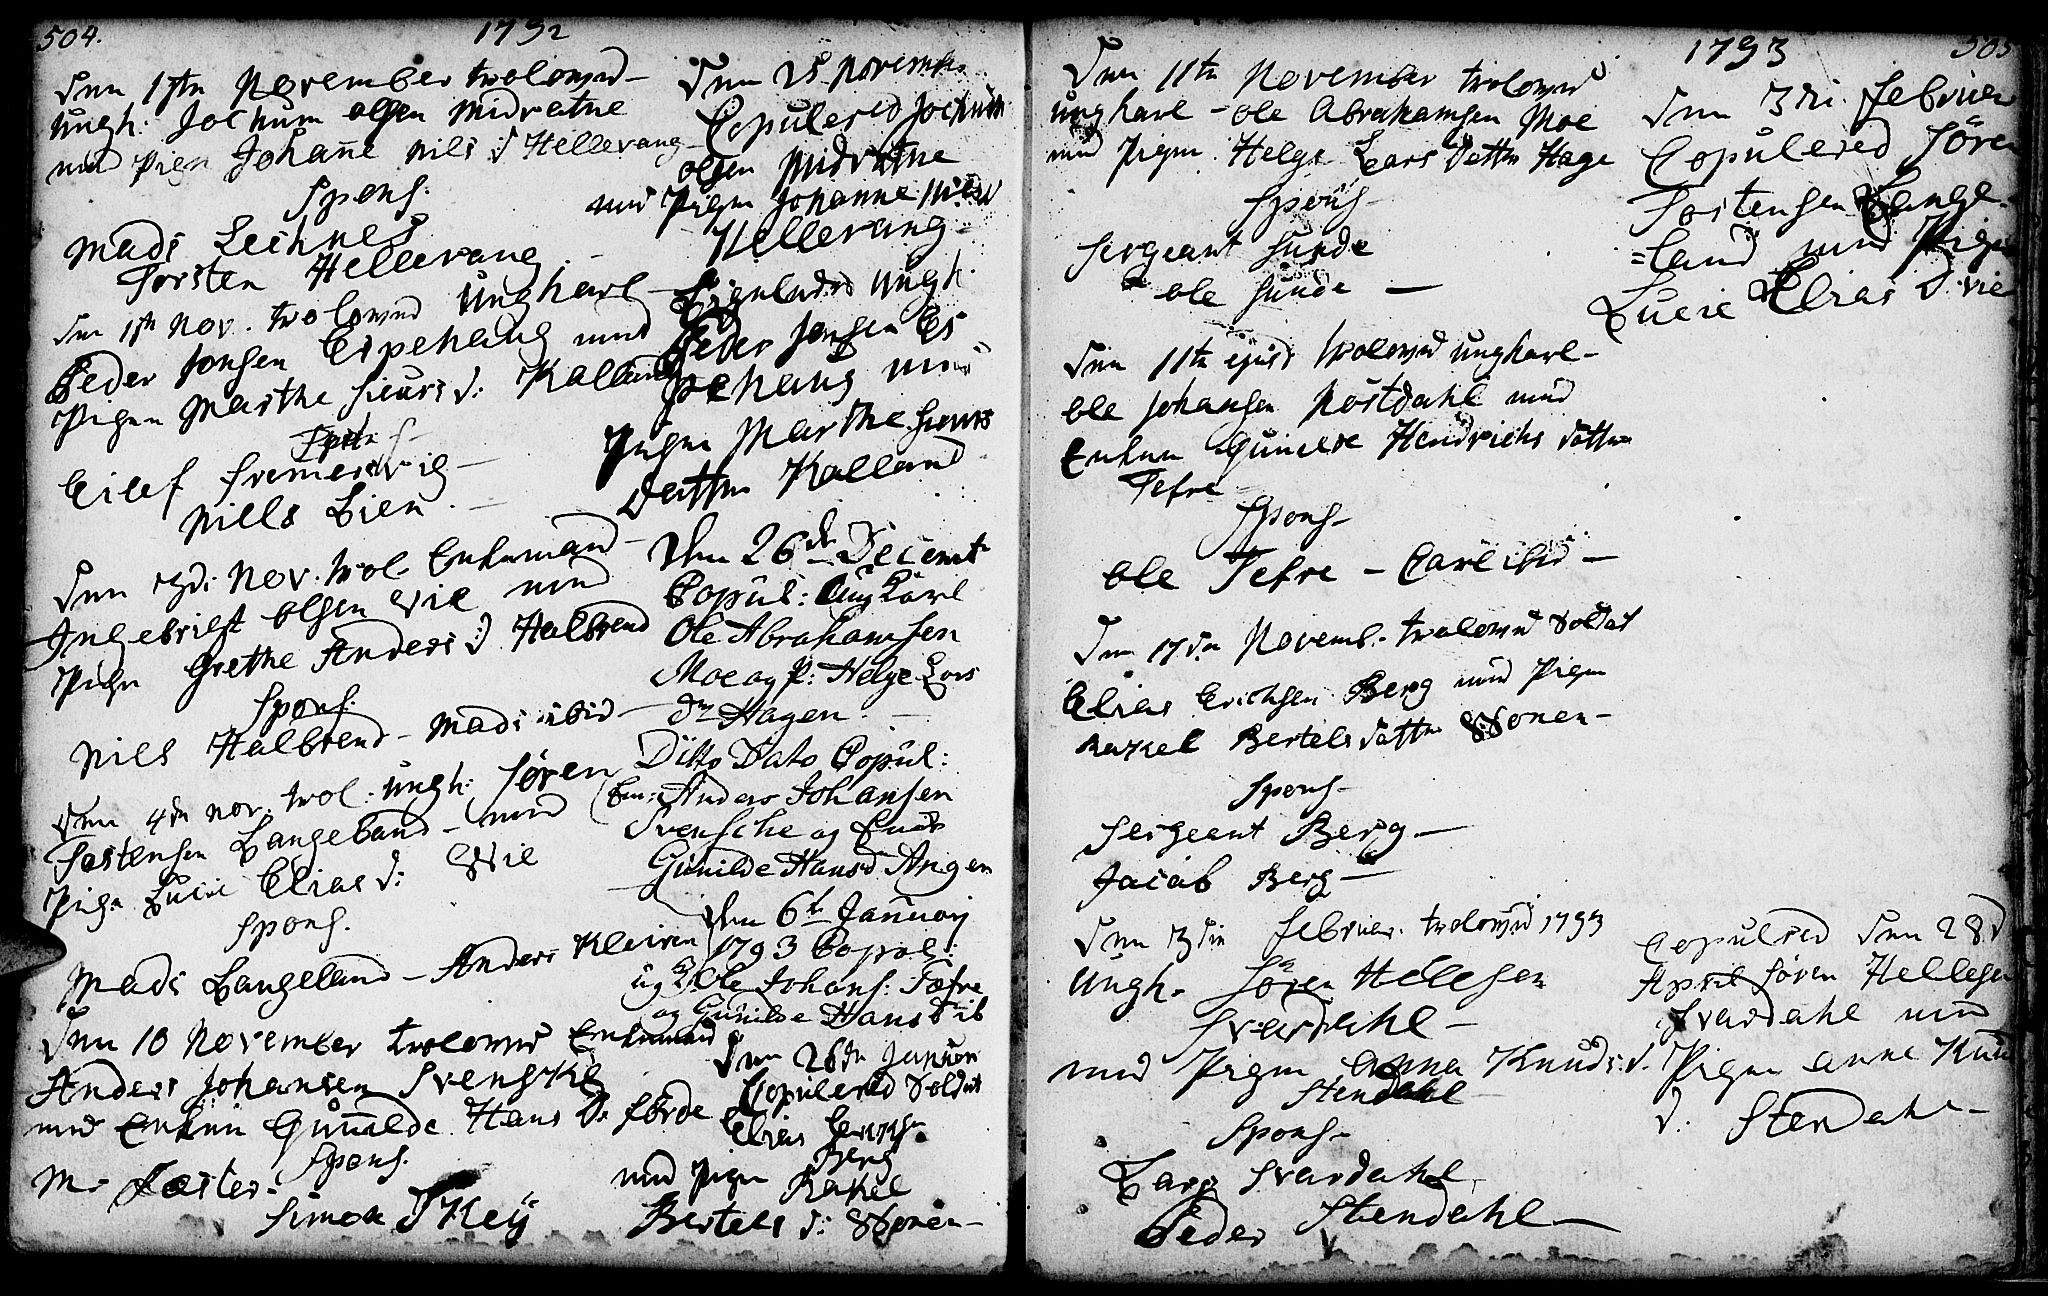 504.
1792
Den 1ste November troloved
Ungk: Jochum olsen Midvatne
med Pigen Johañe Nils d Hellevang
Spons.
Mads Leihnes
Torsten Hellevang
Den 1ste Nov. troloved Ungkarl
Peder Jonsen Espehaug med
Pigen Marthe Siurs d: Kalland
Spons
Eilef Fremersvig
Niells Lien
Den 3di Nov. trol. Enkemand
Ingebrigt olsen Wie med
Pign Grethe Anders d: Halbrend
Spons.
Nils Halbrend - Mads ibid
Den 4de Nov. trol: ungk: Søren
Tostensen Langeland med
Pign Lucie Elias d: Wie
Spons.
Mads Langeland - Anders Kleiven
Den 10 November troloved Enkemand
Anders Johansen Svenske
med Enken Guñilde Hans D: Førde
Spons.
Mr Foster
Simon Skey
Den 25 November
Copulered Jochum
olsen Midvatne
med Pigen Johanne Nils d
Hellevang
Ligeledes Ungk.
Peder Jonsen Es
pehaug med
Pigen Marthe Siurs
Datter Kalland
Den 26de Decemb
Copul: Ung Karl
Ole Abrahamsen
Moe og P: Helge Lars
dr Hagen.
Ditto Dato Copul:
Em: Anders Johansen
Svensche og Enke
Gunilde Hansd Angen
den 6te Januarj
1793 Copul:
ug K Ole Johans: Tefre
og Gunilde Hans d ib
Den 26de Januari
Copulered Soldat
Elias Erichs.
Berg
med Pigen Rakel
Bertels d: Wonen
505
1793
Den 11te November troloved
ungkarl - Ole Abrahamsen Moe
med Pigen Helge Lars datter Hage
Spons
Sergeant Sunde
Ole Sunde
Den 11te ejusd troloved ungkarl
Ole Johansen Nøstdahl med
Enken Gunilde Hendrichs datter
Tefre
Spons
Ole Tefre - Carl ibid
Den 17de Novemb. troloved Soldat
Elias Erichsen Berg med Pigen
Rakel Bertels datter Wonen
Spons
Sergeant Berg
Jacob Berg
Den 3die Februar. troloved 1793
Ungk. Søren Hellesen
Svardahl
med Pigen Anna Knuds d.
Stendahl
Spons
Lars Svardahl
Peder Stendahl
Den 3di. Februar
Copulered Søren
Tostensen Lange
=land med Pigen
Lucie Elias D. Vie
Copulered Den 28d
April Søren Hellesen
Svardahl med
Pigen Anne Knu
d. Stendahl